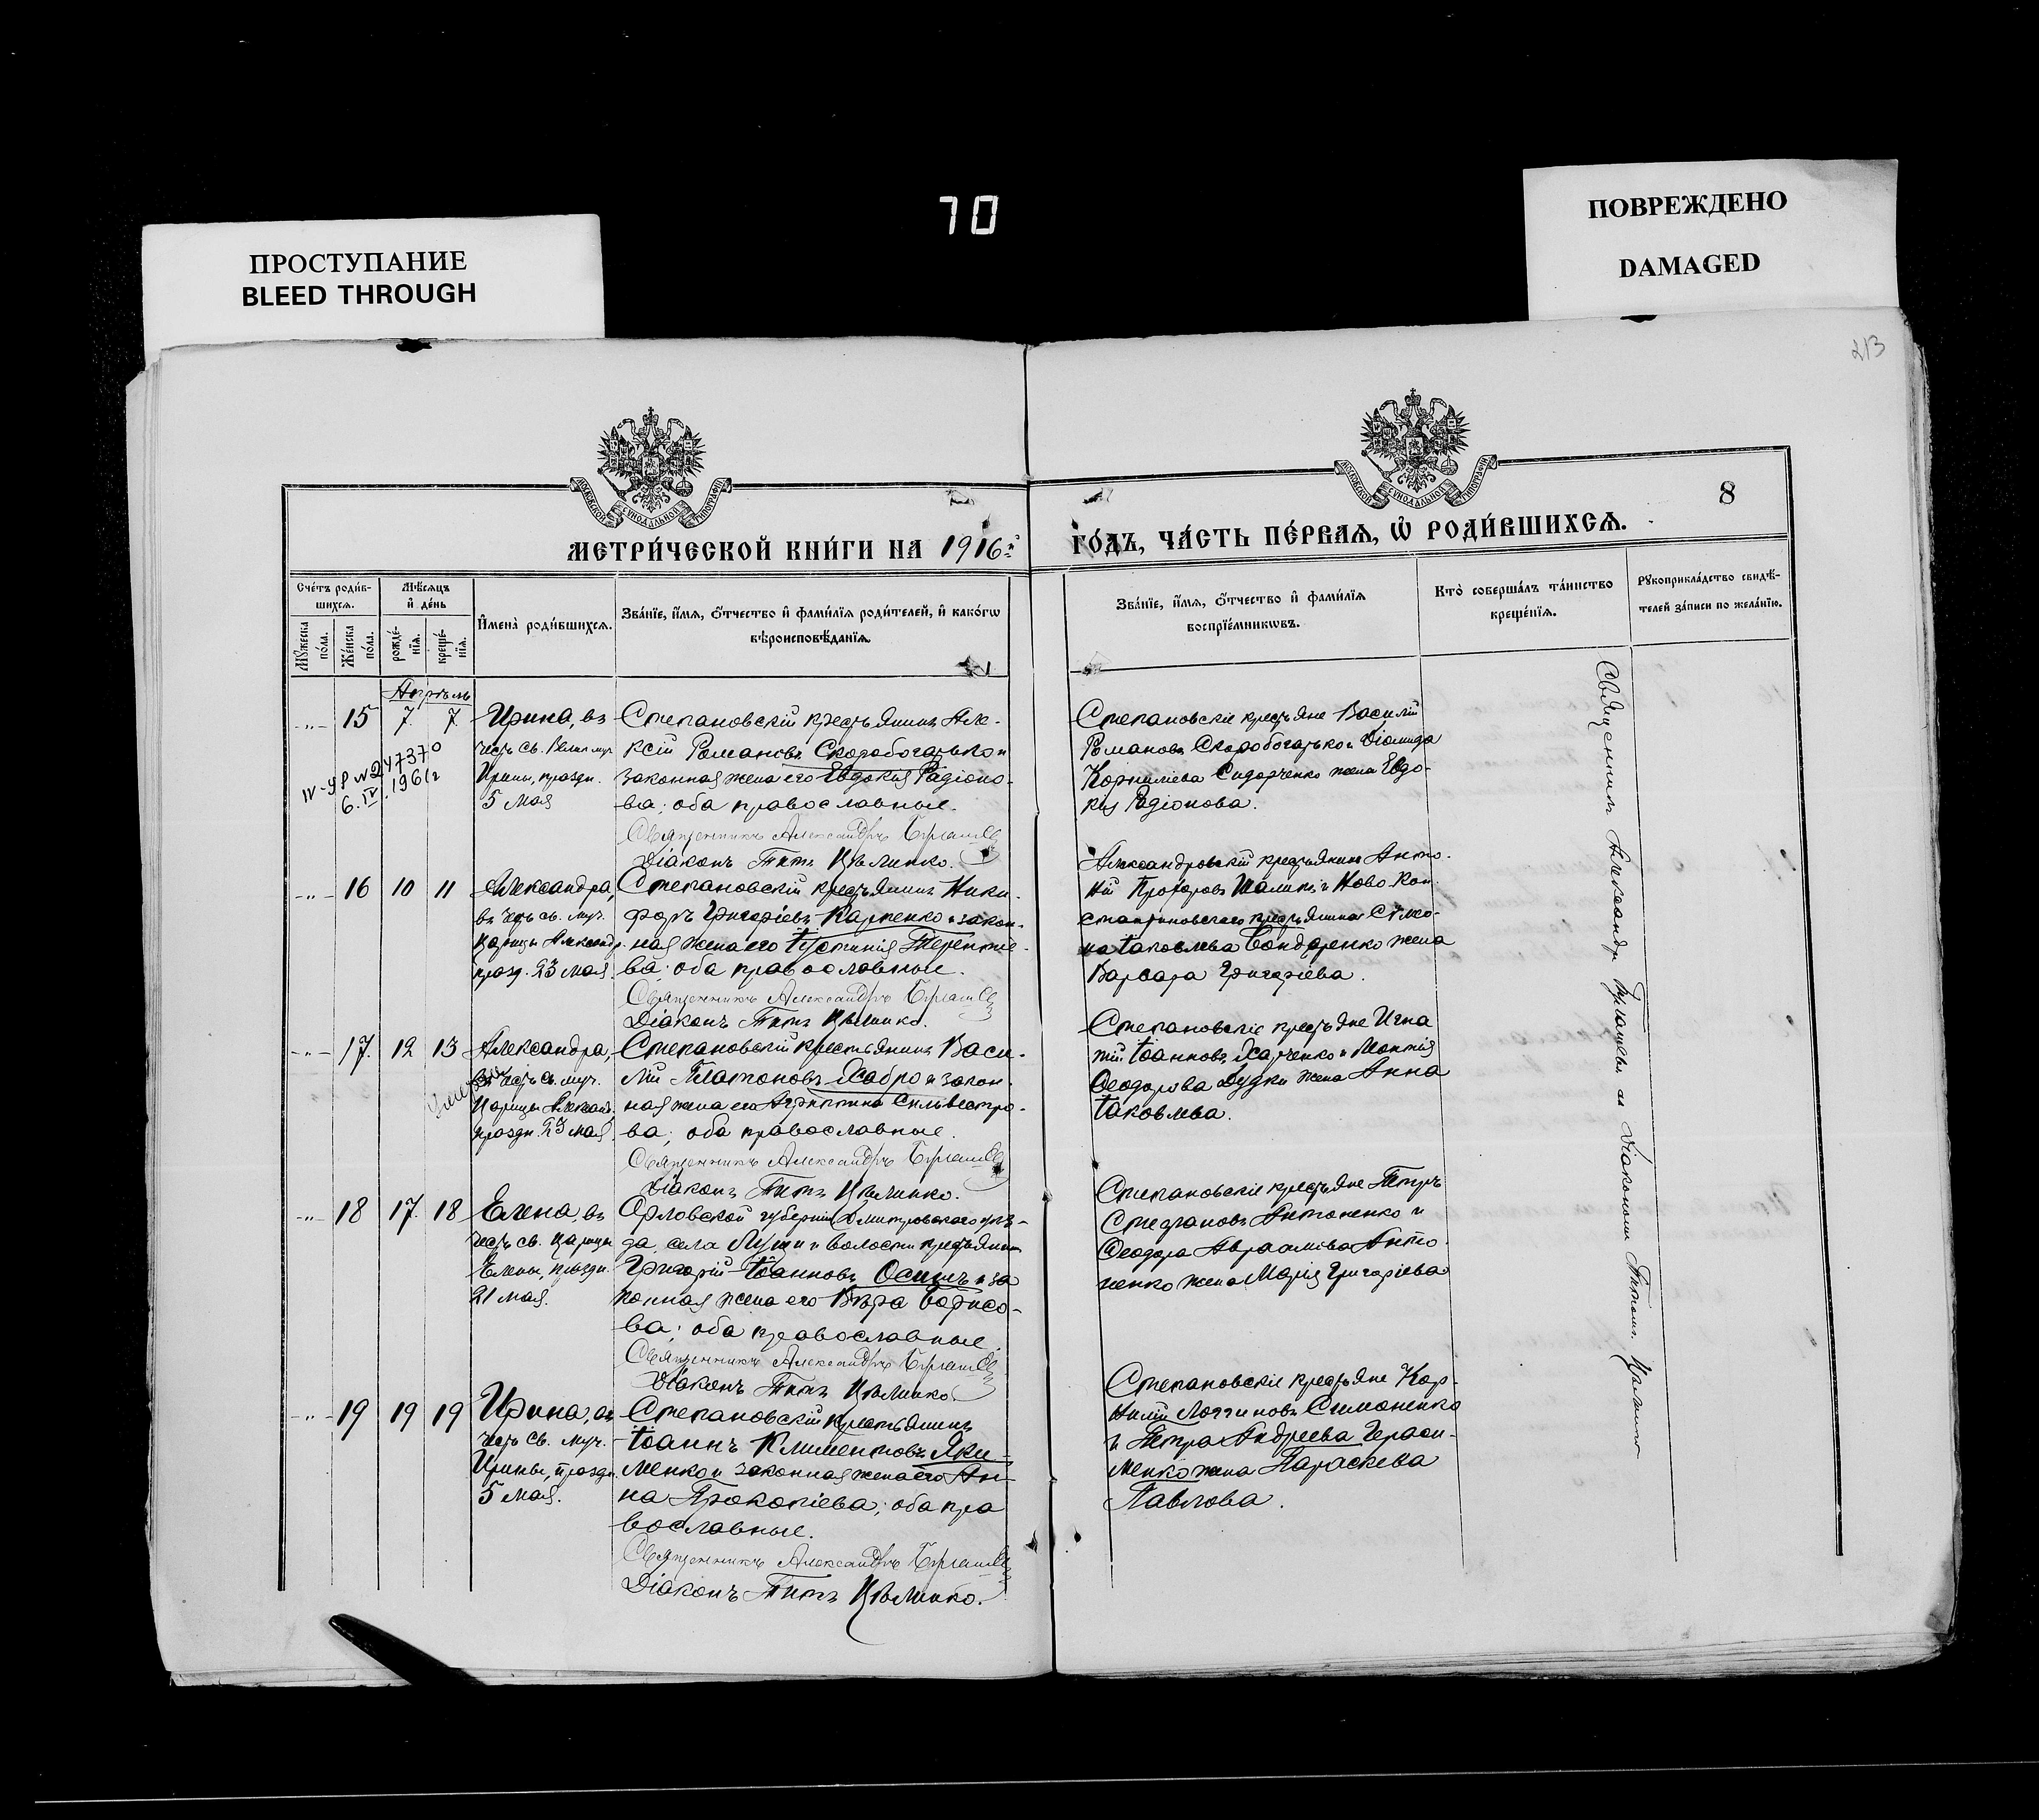 70
ПРОСТУПАНИЕ
BLEED THROUGH
ПОВРЕЖДЕНО
DAMAGED
213
8
МЕТРИ́ЧЕСКОЙ КНИ́ГИ НА 1916 г.
ГО́ДЪ, ЧА́СТЬ ПЕ́РВАЯ, Ѡ РОДИ́ВШИХСЯ.
Сче́тъ роди́в-
шихся.
Мѣ́сяцъ
и де́нь
И҆мена̀ роди́вшихся.
Зва́нїе, и҆́мя, ѻ҆́тчество и҆ фами́лїя роди́телей, и҆ како́гѡ
вѣроисповѣ́данїя.
Мꙋ́жеска по́ла.
Же́нска по́ла.
рожде́-
нїя.
креще́-
нїя.
Зва́нїе, и҆́мя, ѻ҆́тчество и҆ фами́лїя
воспрїе́мникѡвъ.
Кто̀ соверша́лъ та́инство
креще́нїя.
Рꙋкоприкла́дство свидѣ́-
телей за́писи по жела́нїю.
Апрѣль
-"- 15 7. 7.
Ирина, въ
честь св. Велик муч
Ирины, праздн.
5 Мая
Степановскій крестьянинъ Але-
ксій Романовъ Скоробогатько и
законная жена его Евдокія Радіоно-
ва; оба православные.
Священникъ Александръ
Діаконъ Титъ Цѣлинко.
Степановскіе крестьяне Василій
Романовъ Скоробогатько и Діомида
Корнилiева Сидорченко жена Евдо-
кія Радіонова.
6.IV.1961г
-"- 16 10 11
Александра,
въ честь св. муч.
Царицы Александр.
празд. 23 мая.
Степановскій крестьянинъ Ники-
форъ Григоріевъ Карпенко и закон-
ная жена его Іустинія Терентье-
ва; оба православные.
Священникъ Александръ
Діаконъ Титъ Цѣлинко.
Александровскій крестьянинъ Анто-
ній Прохоровъ и Ново-Кон-
стантиновскаго крестьянина Симео-
на Іаковлева Бондаренко жена
Варвара Григоріева.
-"- 17. 12 13
Александра,
въ честь св. муч.
Царицы Александ.
праздн. 23 мая.
Степановскій крестьянинъ Васи-
лій Платоновъ Хабро и закон-
ная жена его Агрипина Сильвестро-
ва; оба православные.
Священникъ Александръ
Діаконъ Титъ Цѣлинко.
Степановскіе крестьяне Игна
тій Іоанновъ Харченко и
Ѳеодорова Дудки жена Анна
Іаковлева.
-"- 18 17. 18
Елена, въ
честь св. Царицы
Елены, праздн.
21 мая.
Орловской губерніи Дмитровскаго уѣз-
да, села и волости крестьянинъ
Григорій Іоанновъ Осипъ и за
конная жена его Вѣра Борисо-
ва; оба православные.
Священникъ Александръ
Діаконъ Титъ Цѣлинко.
Степановскіе крестьяне Петръ
Стефановъ Антоненко и
Ѳеодора Авраамова Анто-
ненко жена Марія Григоріева
-"- 19 19 19
Ирина, въ
честь св. муч.
Ирины, праздн.
5 мая.
Степановскій крестьянинъ
Іоаннъ Климентовъ Яки-
менко и законная жена его Ан-
на Прокопіева; оба пра
вославные.
Священникъ Александръ
Діаконъ Титъ Цѣлинко.
Степановскіе крестьяне Кор-
нилій Логгиновъ Симоненко
и Петра Андреева Гераси-
менко жена Параскева
Павлова.
Священникъ Александръ съ діакономъ Титомъ Цѣлинко